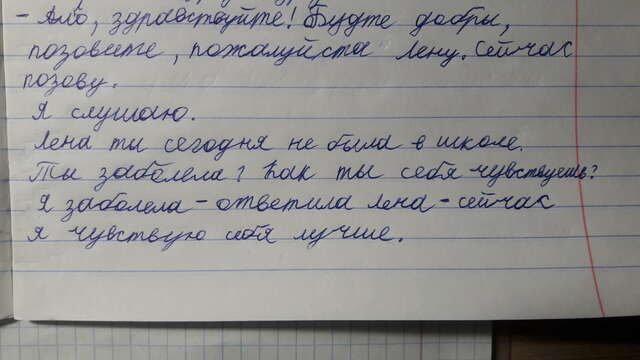 - Алё, здравствуйте! Будте добры,
позовите, пожалуйста Лену. Сейчас
позову.
Я слушаю.
Лена ты сегодня не была в школе.
Ты заболела? Как ты себя чувствуешь?
Я заболела - ответила Лена - сейчас
я чувствую себя лучше.